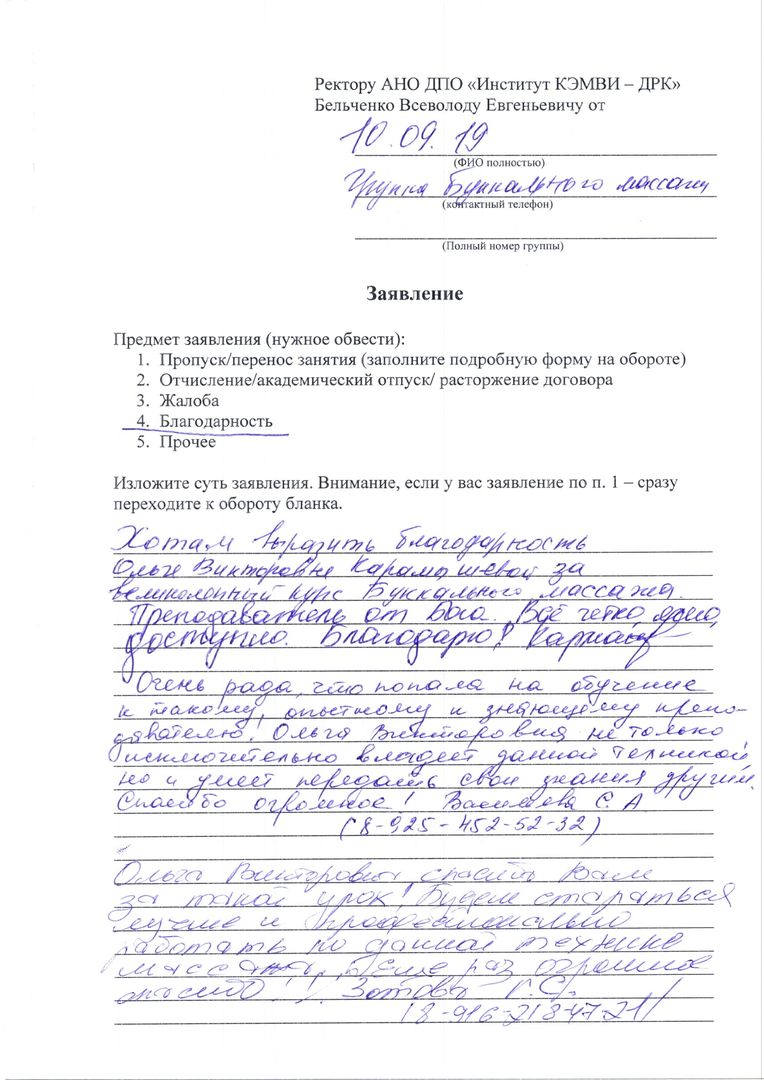 Ректору АНО ДПО «Институт КЭМВИ – ДРК»
Бельченко Всеволоду Евгеньевичу от
10.09.19
(ФИО полностью)
Группа Буккального массажа
(контактный телефон)
(Полный номер группы)
Заявление
Предмет заявления (нужное обвести):
1. Пропуск/перенос занятия (заполните подробную форму на обороте)
2. Отчисление/академический отпуск/ расторжение договора
3. Жалоба
4. Благодарность
5. Прочее
Изложите суть заявления. Внимание, если у вас заявление по п. 1 – сразу
переходите к обороту бланка.
Хотам выразить благодарность
Ольге Викторовне Карамышевой за
великолепный курс Буккального массажа.
Преподаватель от Бога. Всё четко, ясно,
доступно. Благодарю!
Очень рада, что попала на обучение
к такому, опытному и знающему препо-
давателю. Ольга Викторовна не только
исключительно владеет данной техникой,
но и умеет передать свои знания другим.
Спасибо огромное! Васильева С. А
(8-925-452-52-32)
Ольга Викторовна, спасибо Вам
за такой урок! Будем стараться
лучше и профессионально
работать по данной технике
массажа. Еще раз огромное
спасибо!!
(8-916-218-47-21)